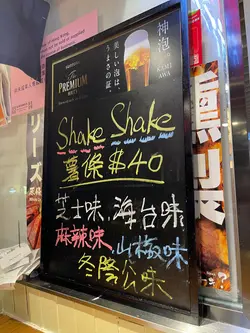 The
PREMIUM
MALT'S
美しい泡は、
うまさの証。
神泡
KAMI
AWA
Shake Shake
薯條$40
芝士味,海苔味
麻辣味,山椒味
冬陰公味
リーズ
燻製